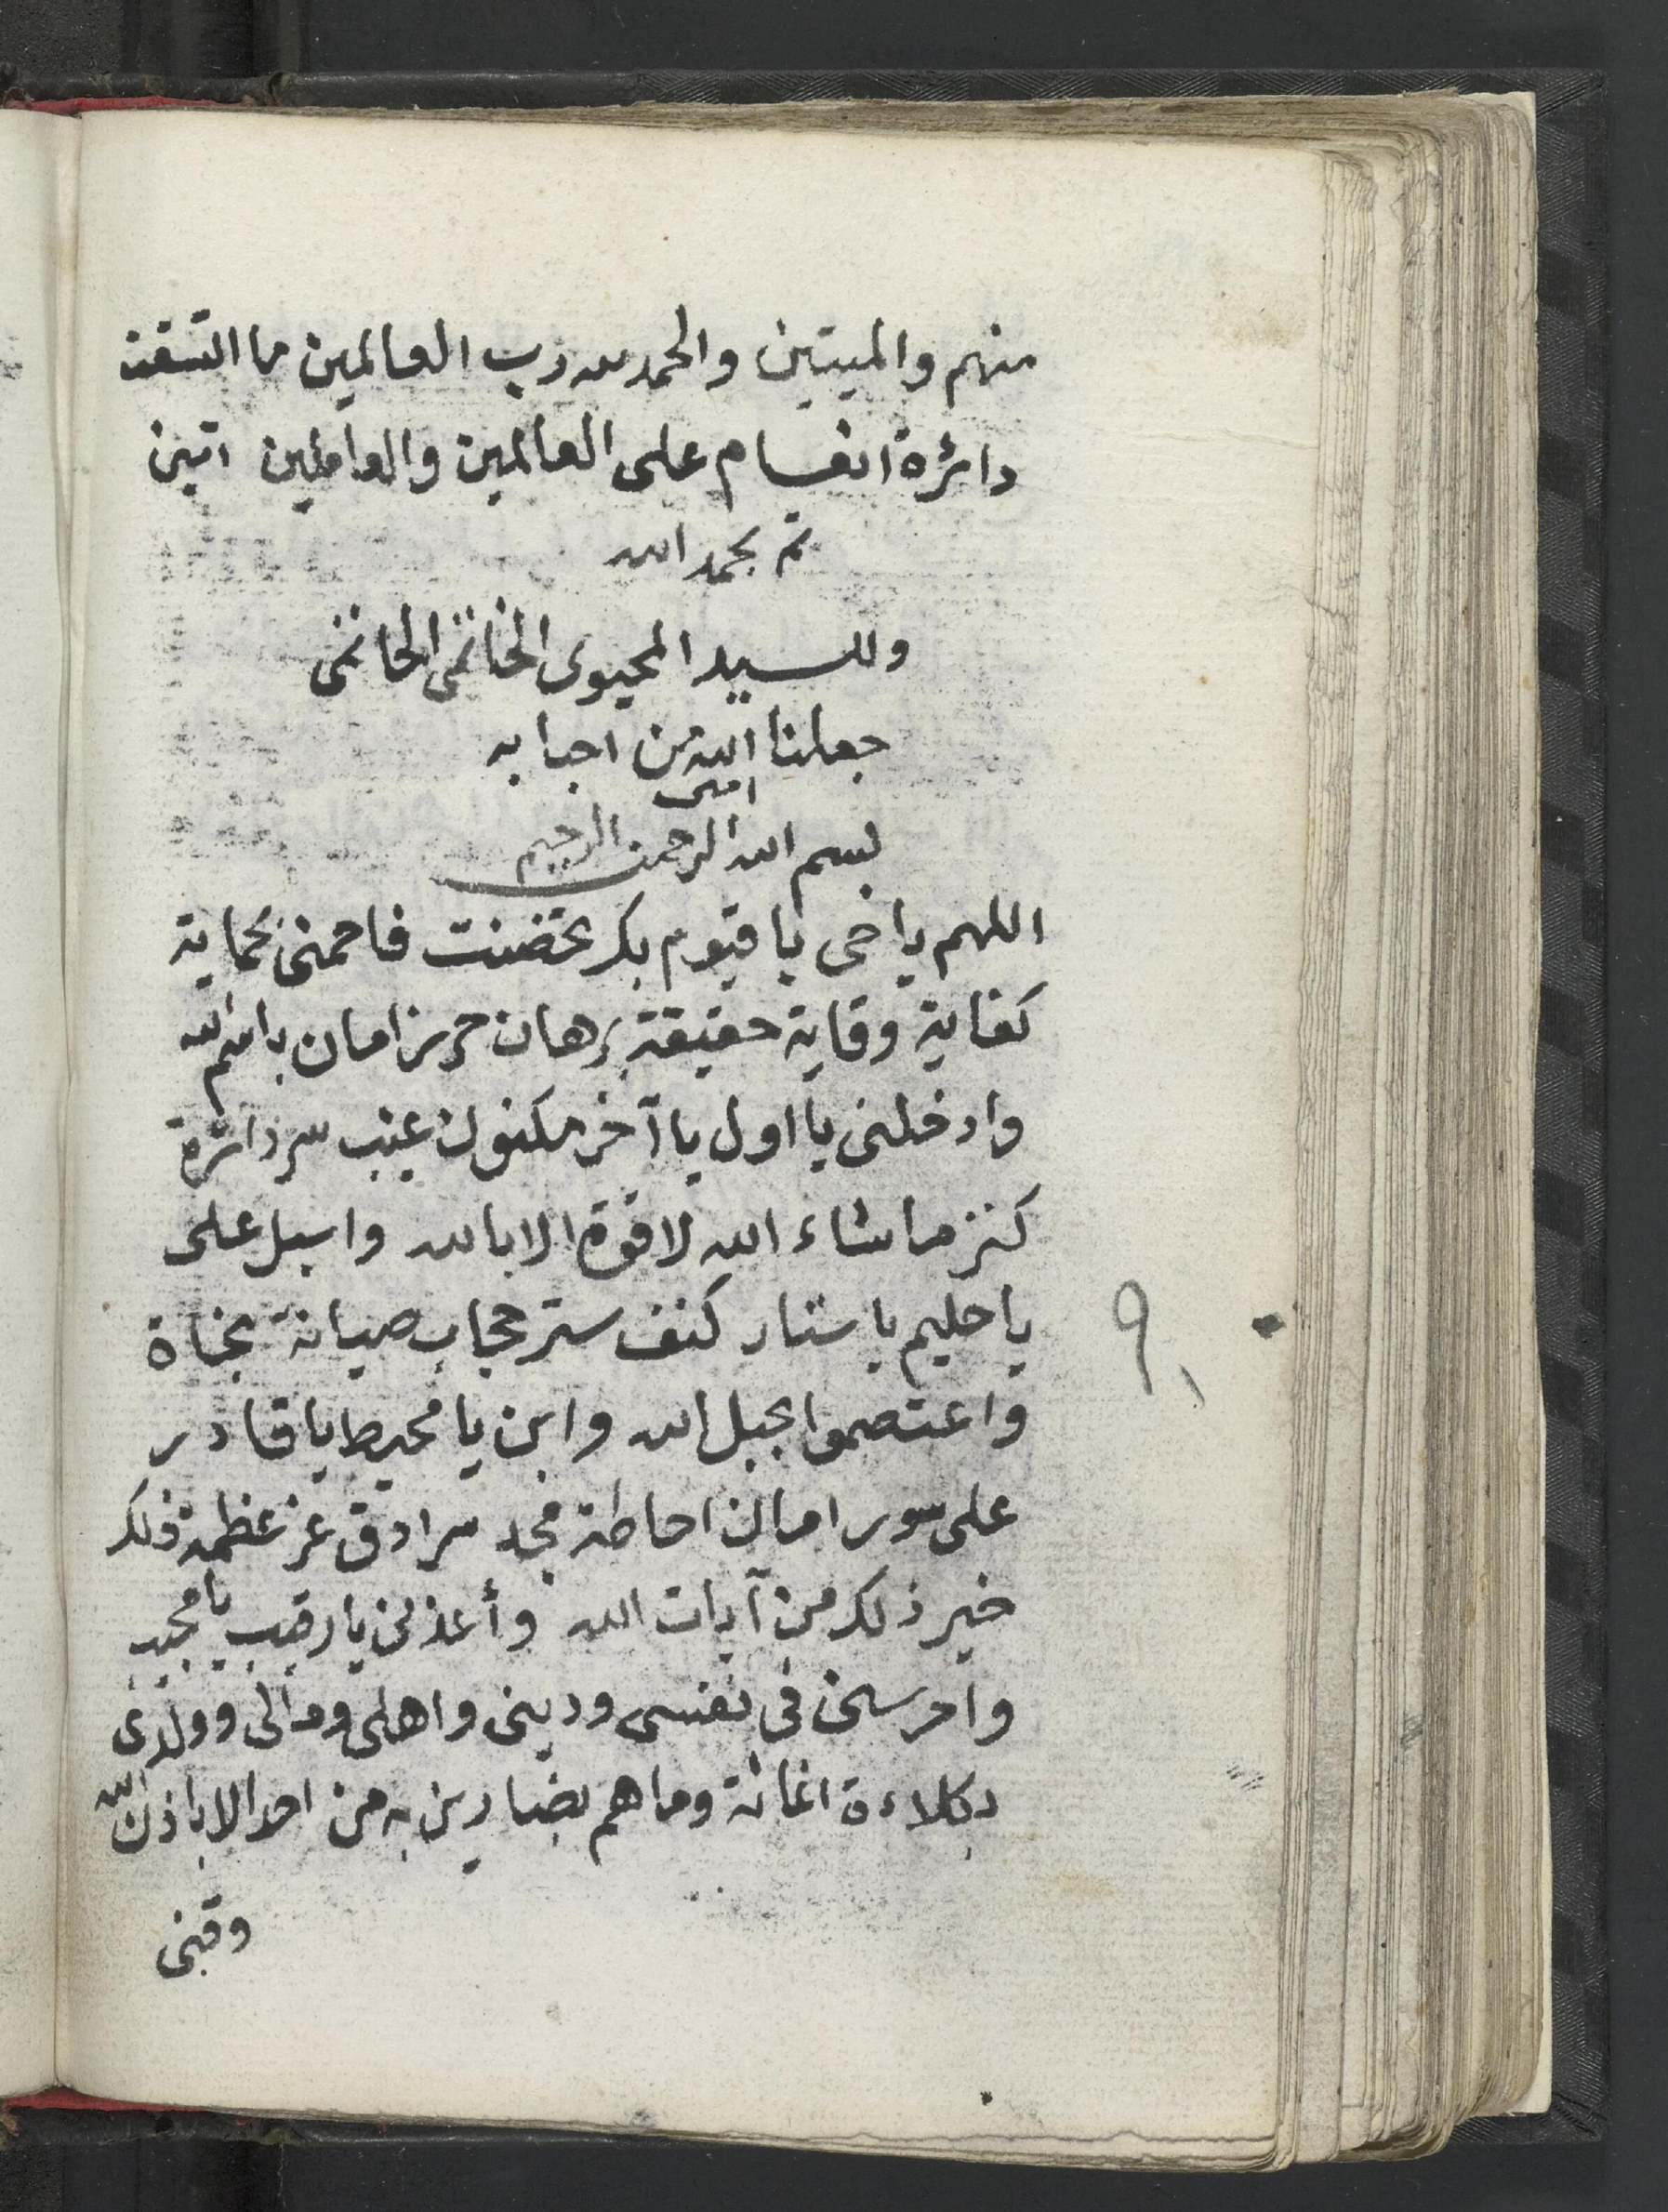 منهم والميتين والحمد لله رب العالمين ما اتسقت
دائرة انقسام على العالمين والعاملين امين
تم بحمد الله
وللسيد المحيوى الخاتمى الحاتمى
جعلنا الله من احبابه
امين
بسم الله الرحمن الرحيم
اللهم يا حى يا قيوم بك تحضنت فاحمنى بحماية
كفاية وقاية حقيقة برهان حرز امان باسم الله
وادخلنى يا اول يا آخر مكنون غيب سر دائرة
كنز ما شاء الله لا قوة الا بالله واسبل على
يا حليم يا ستار كنف ستر حجاب صيانة نجاة
واعتصموا بحبل الله وابن يا محيط يا قادر
على سور امان احاطة مجد سرادق عز عظمة ذلك
خير ذلك من آيات الله وأعذنى يا رقيب يا مجيب
واحرسنى فى نفسى ودينى واهلى ومالى وولدى
بكلاءة اغاثة وما هم بضارين به من احد الا باذن الله
وقنى
٩١